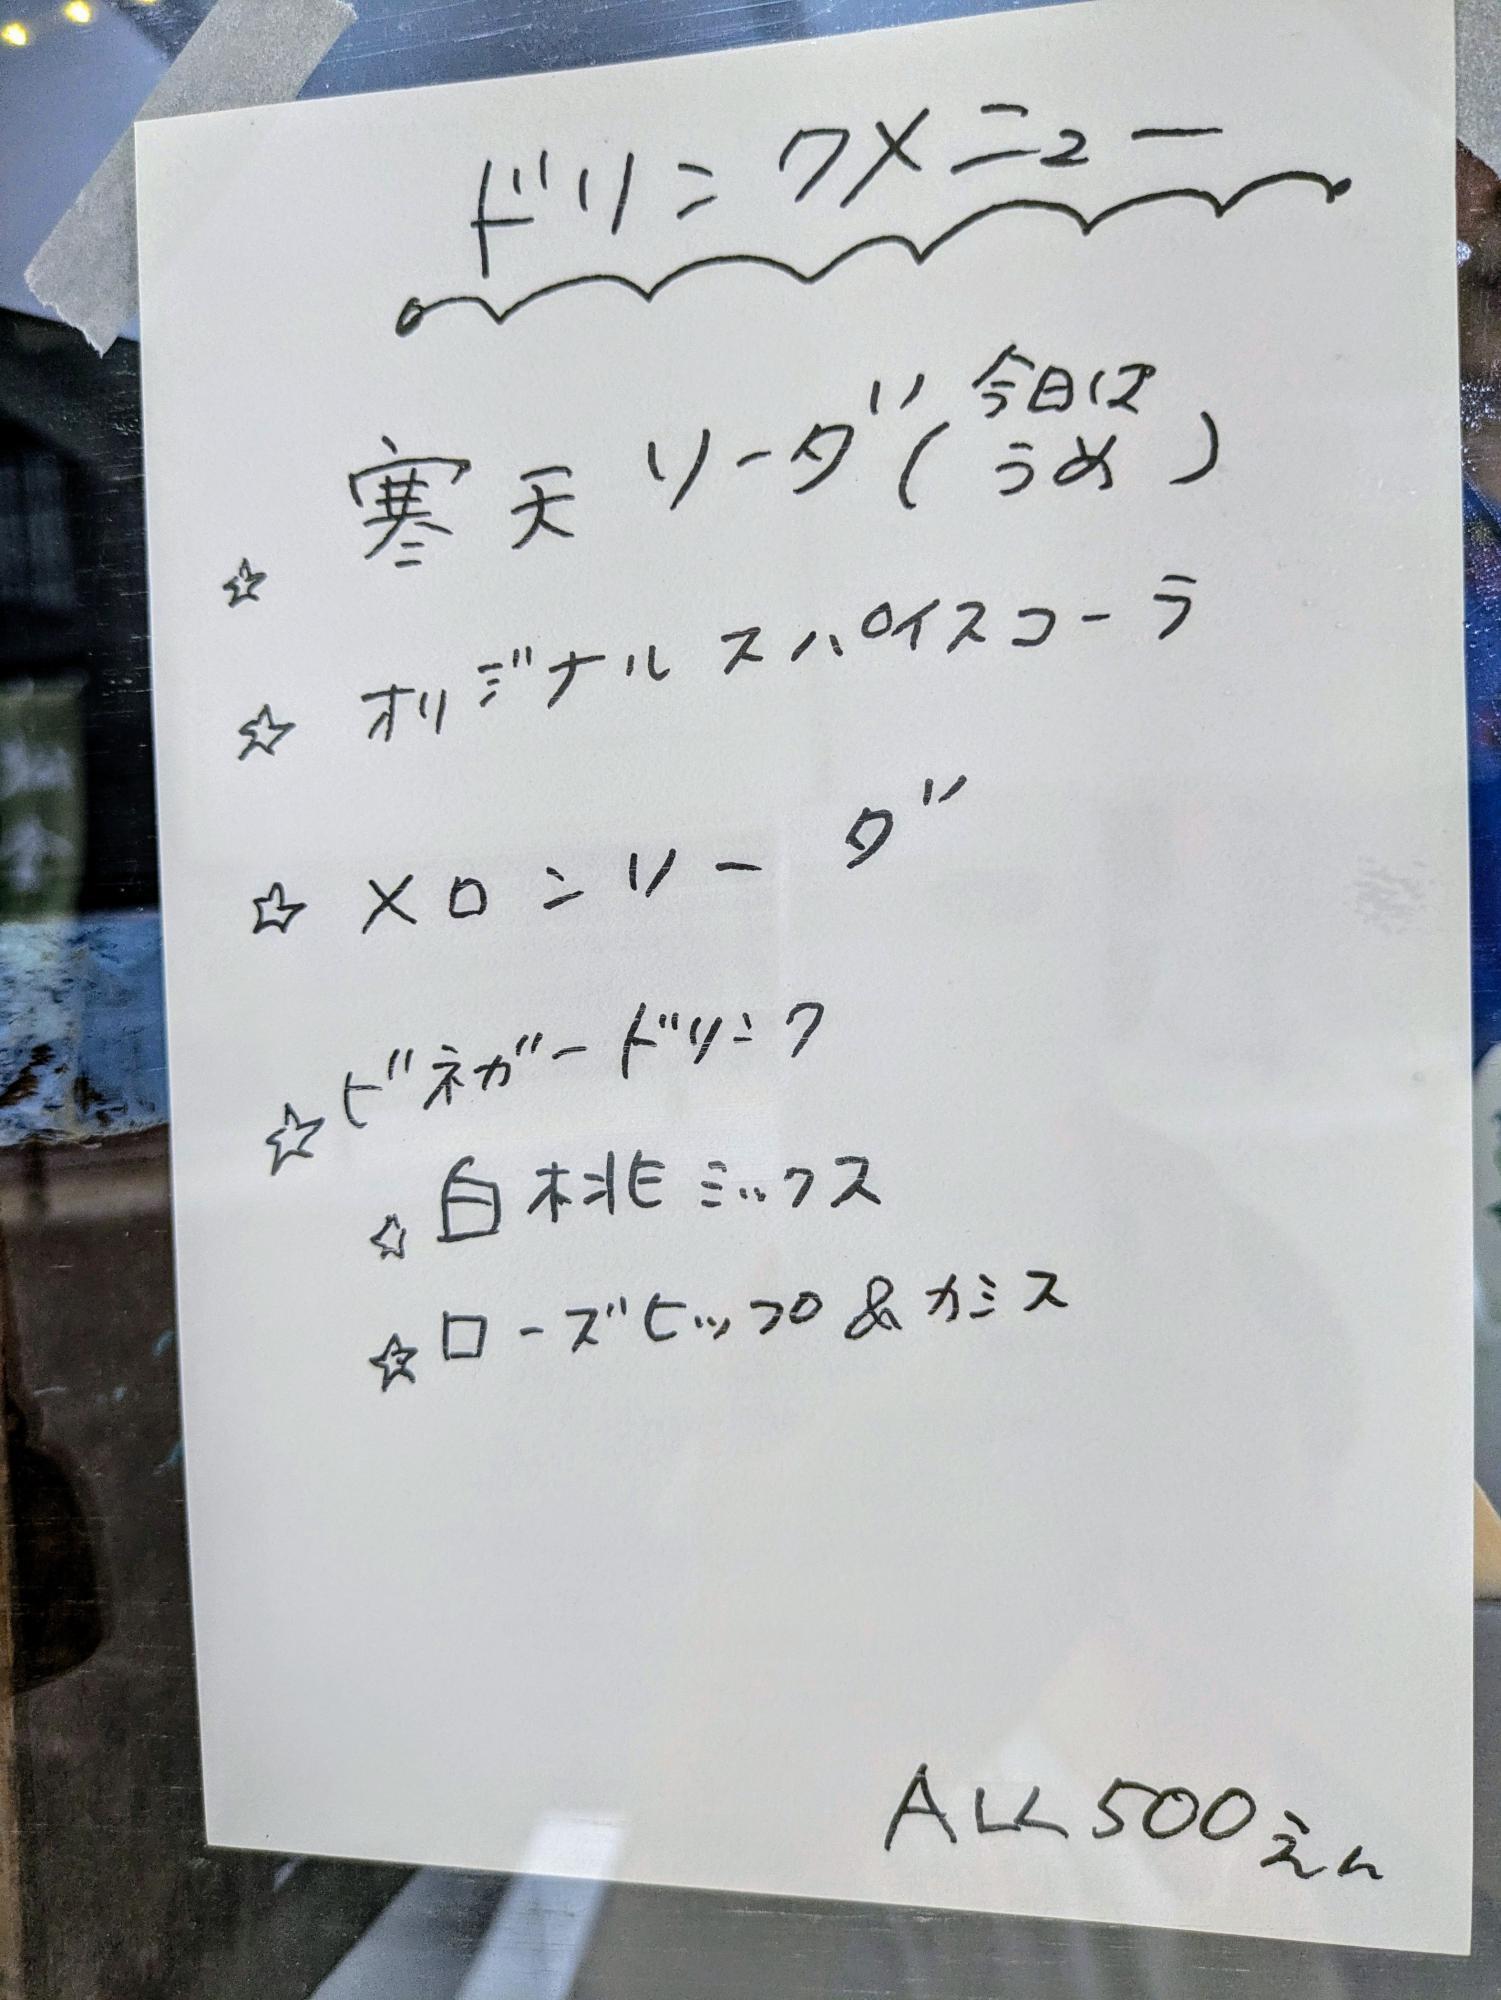 ドリンクメニュー
☆ 寒天ソーダ(今日は
うめ)
☆ オリジナルスパイスコーラ
☆ メロンソーダ
☆ ビネガードリンク
☆ 白桃ミックス
☆ ローズヒップ&カシス
ALL 500えん